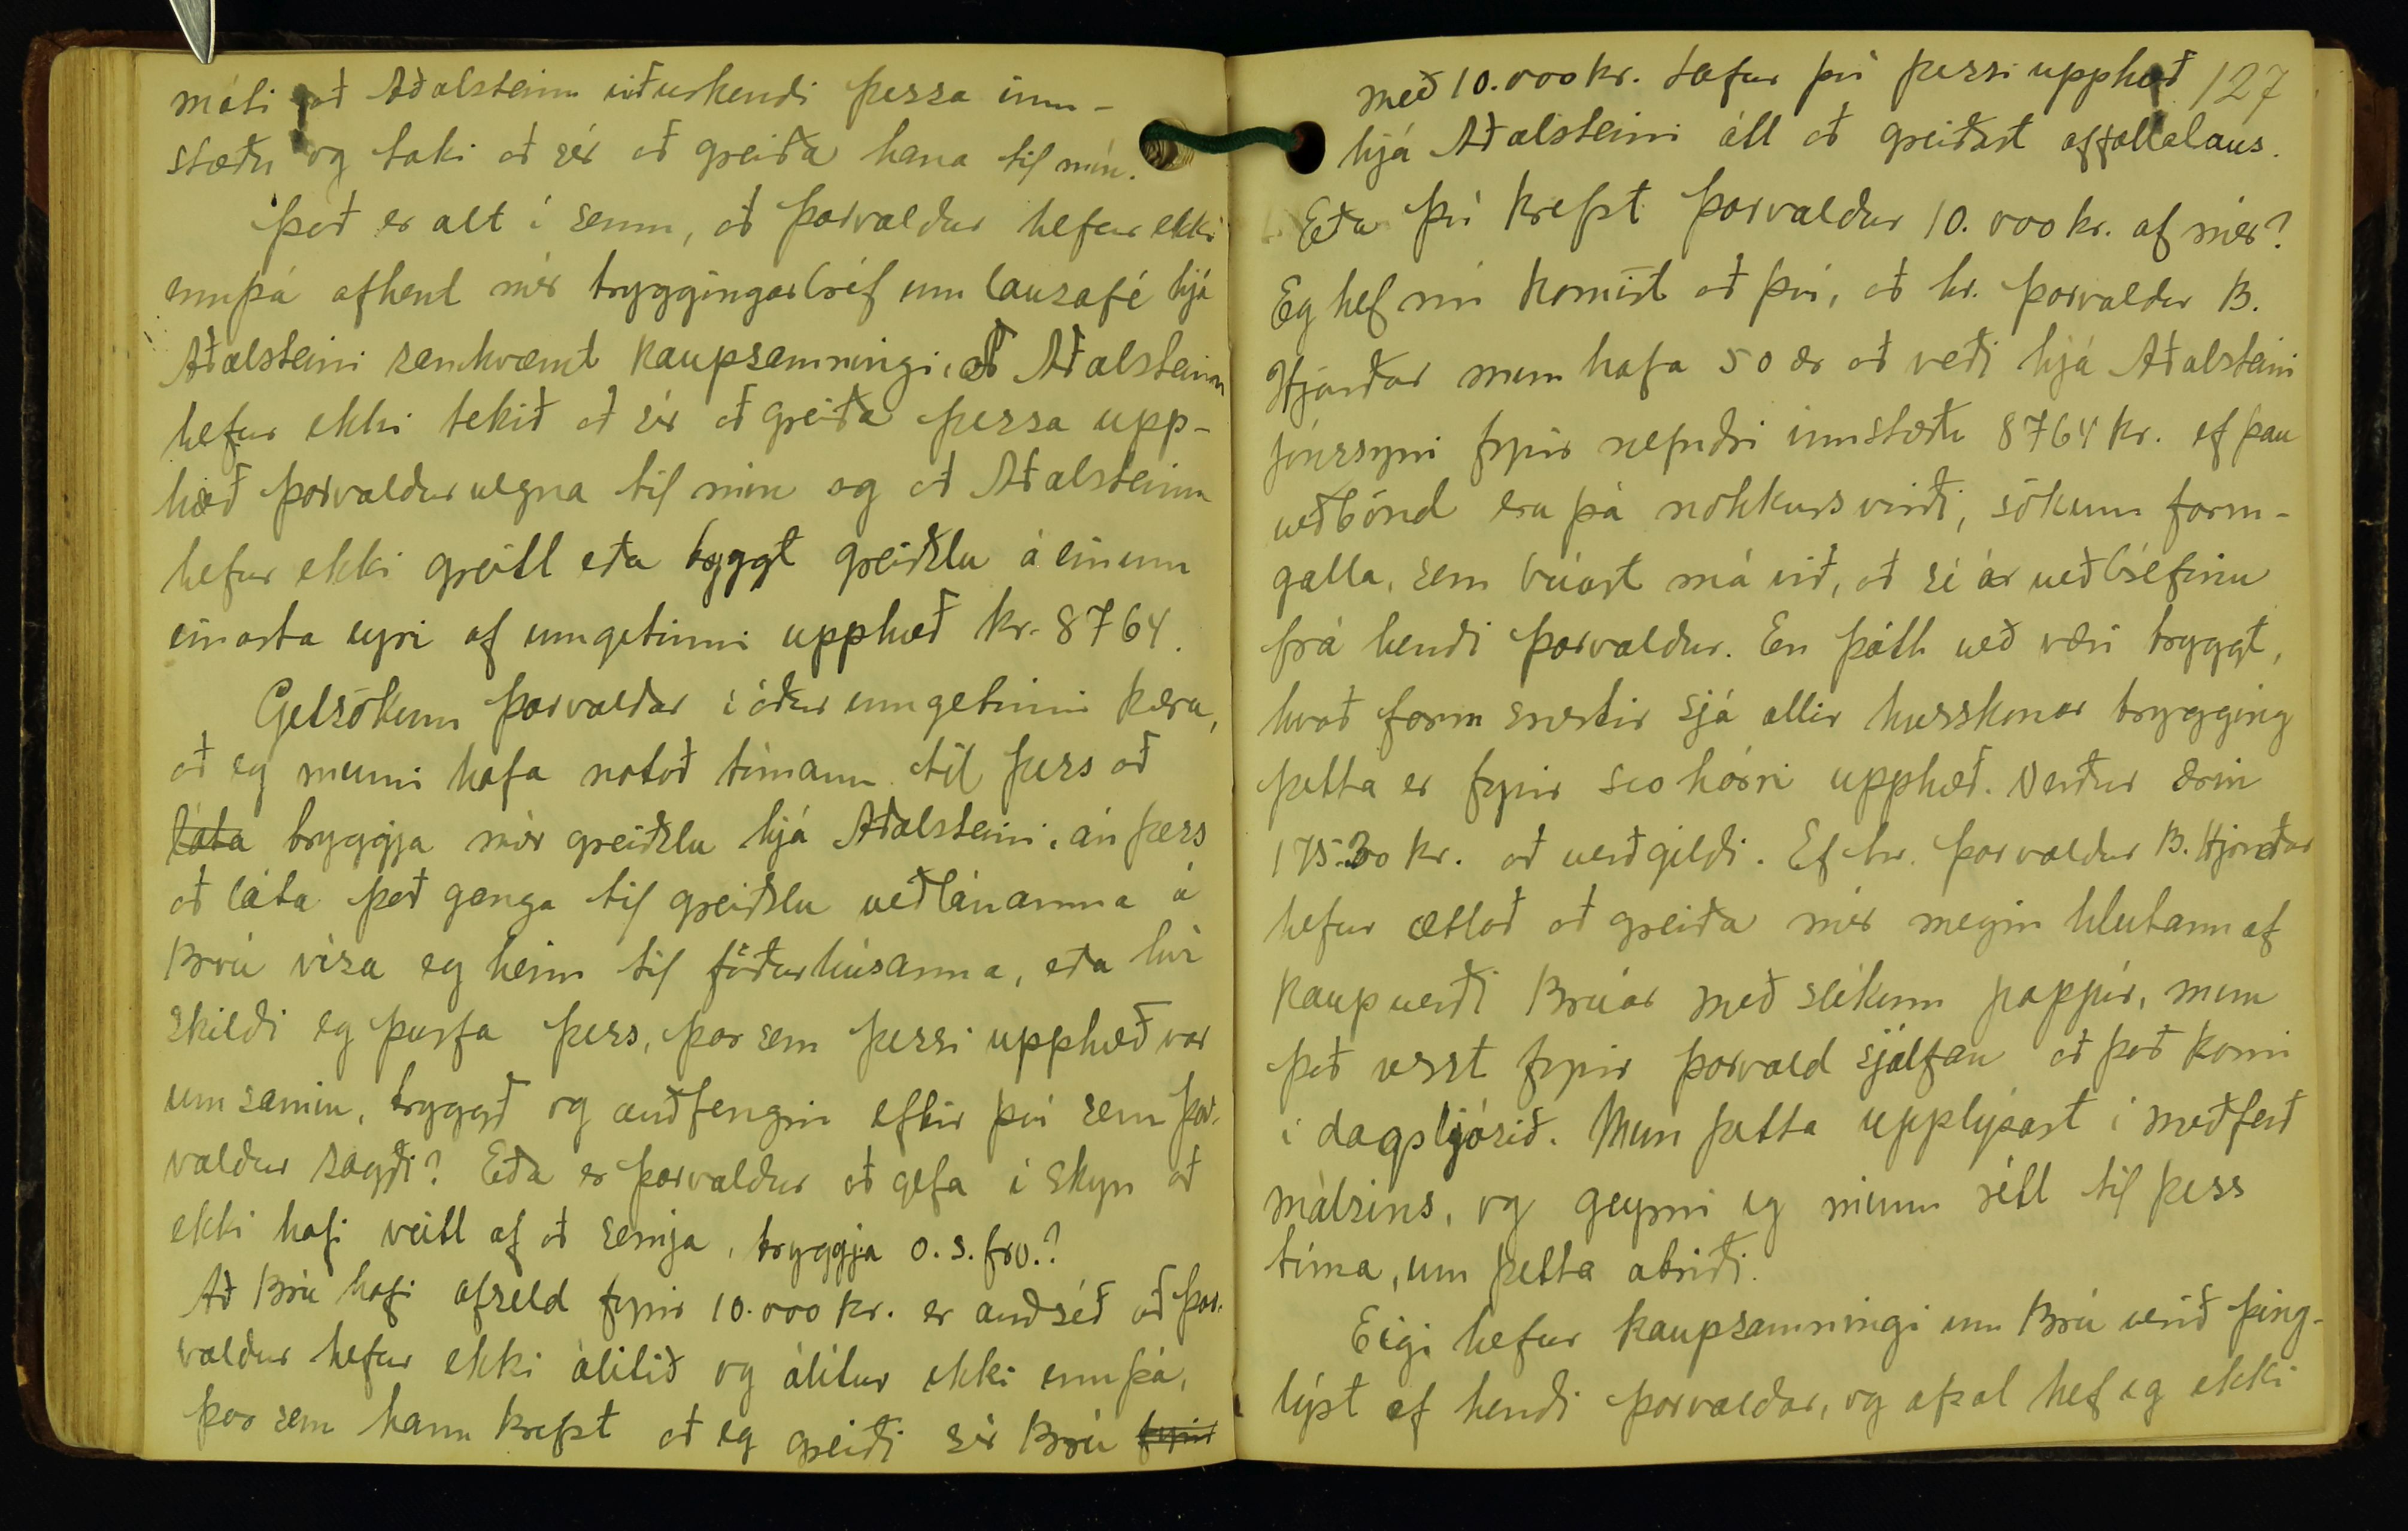 máti að Aðalsteinn viðurkendi þessa inn-
stæðu og taki að sér að greiða hana til mín.
Það er alt í senn, að Þorvaldur hefur ekki
ennþá afhent mér tryggingarbréf um lausafé hjá
Aðalsteini samkvæmt kaupsamningi, að Aðalsteinn
hefur ekki tekið að sér að greiða þessa upp-
hæð Þorvaldur vegna til mín og að Aðalsteinn
hefur ekki greitt eða tryggt greiðslu á einum
einasta eyri af umgetinni upphæð kr. 8764.
Getsökum Þorvaldar í áður umgetinni kæru,
að eg muni hafa notað tímann til þess að
láta tryggja mér greiðslu hjá Aðalsteini, án þess
að láta það ganga til greiðslu veðlánanna á
Brú vísa eg heim til föðurhúsanna, eða hví
skildi eg þurfa þess, þar sem þessi upphæð var
um samin, tryggð og auðfengin eftir því sem Þor-
valdur sagði? Eða er Þorvaldur að gefa í skyn að
ekki hafi veitt af að semja, tryggja o.s.frv.?
Að Brú hafi afseld fyrir 10.000 kr. er auðséð að Þor-
valdur hefur ekki álitið og álitur ekki ennþá,
þar sem hann krefst að eg greiði sér Brú fyrir
með 10.000 kr. Hefur því þessi upphæð 127
hjá Aðalsteini átt að greiðast affallalaus.
Eða því krefst Þorvaldur 10.000 kr. af mér?
Eg hef nú komist að því, að hr. Þorvaldur B.
Hjarðar mun hafa 50 ær að veði hjá Aðalsteini
Jónssyni fyrir nefndri innstæðu 8764 kr. ef þau
veðbönd eru þá nokkurs virði, sökum form-
galla, sem búast má við, að sé ár veðbréfinu
frá hendi Þorvaldur. En þótt veð væri tryggt,
hvað form snertir sjá allir hversskonar trygging
þetta er fyrir svo hárri upphæð. Verður ærin
175.30 kr. að verðgildi. Ef hr. Þorvaldur B. Hjarðar
hefur ætlað að greiða mér megin hlutann af
kaupverði Brúar með slíkum pappír, mun
það verst fyrir Þorvald sjálfan að það komi
í dagsljósið. Mun þetta upplýsast í meðferð
málsins, og geymi eg minn rétt til þess
tíma, um þetta atriði.
Eigi hefur kaupsamningi um Brú verið þing-
lýst af hendi Þorvaldar, og afsal hef eg ekki